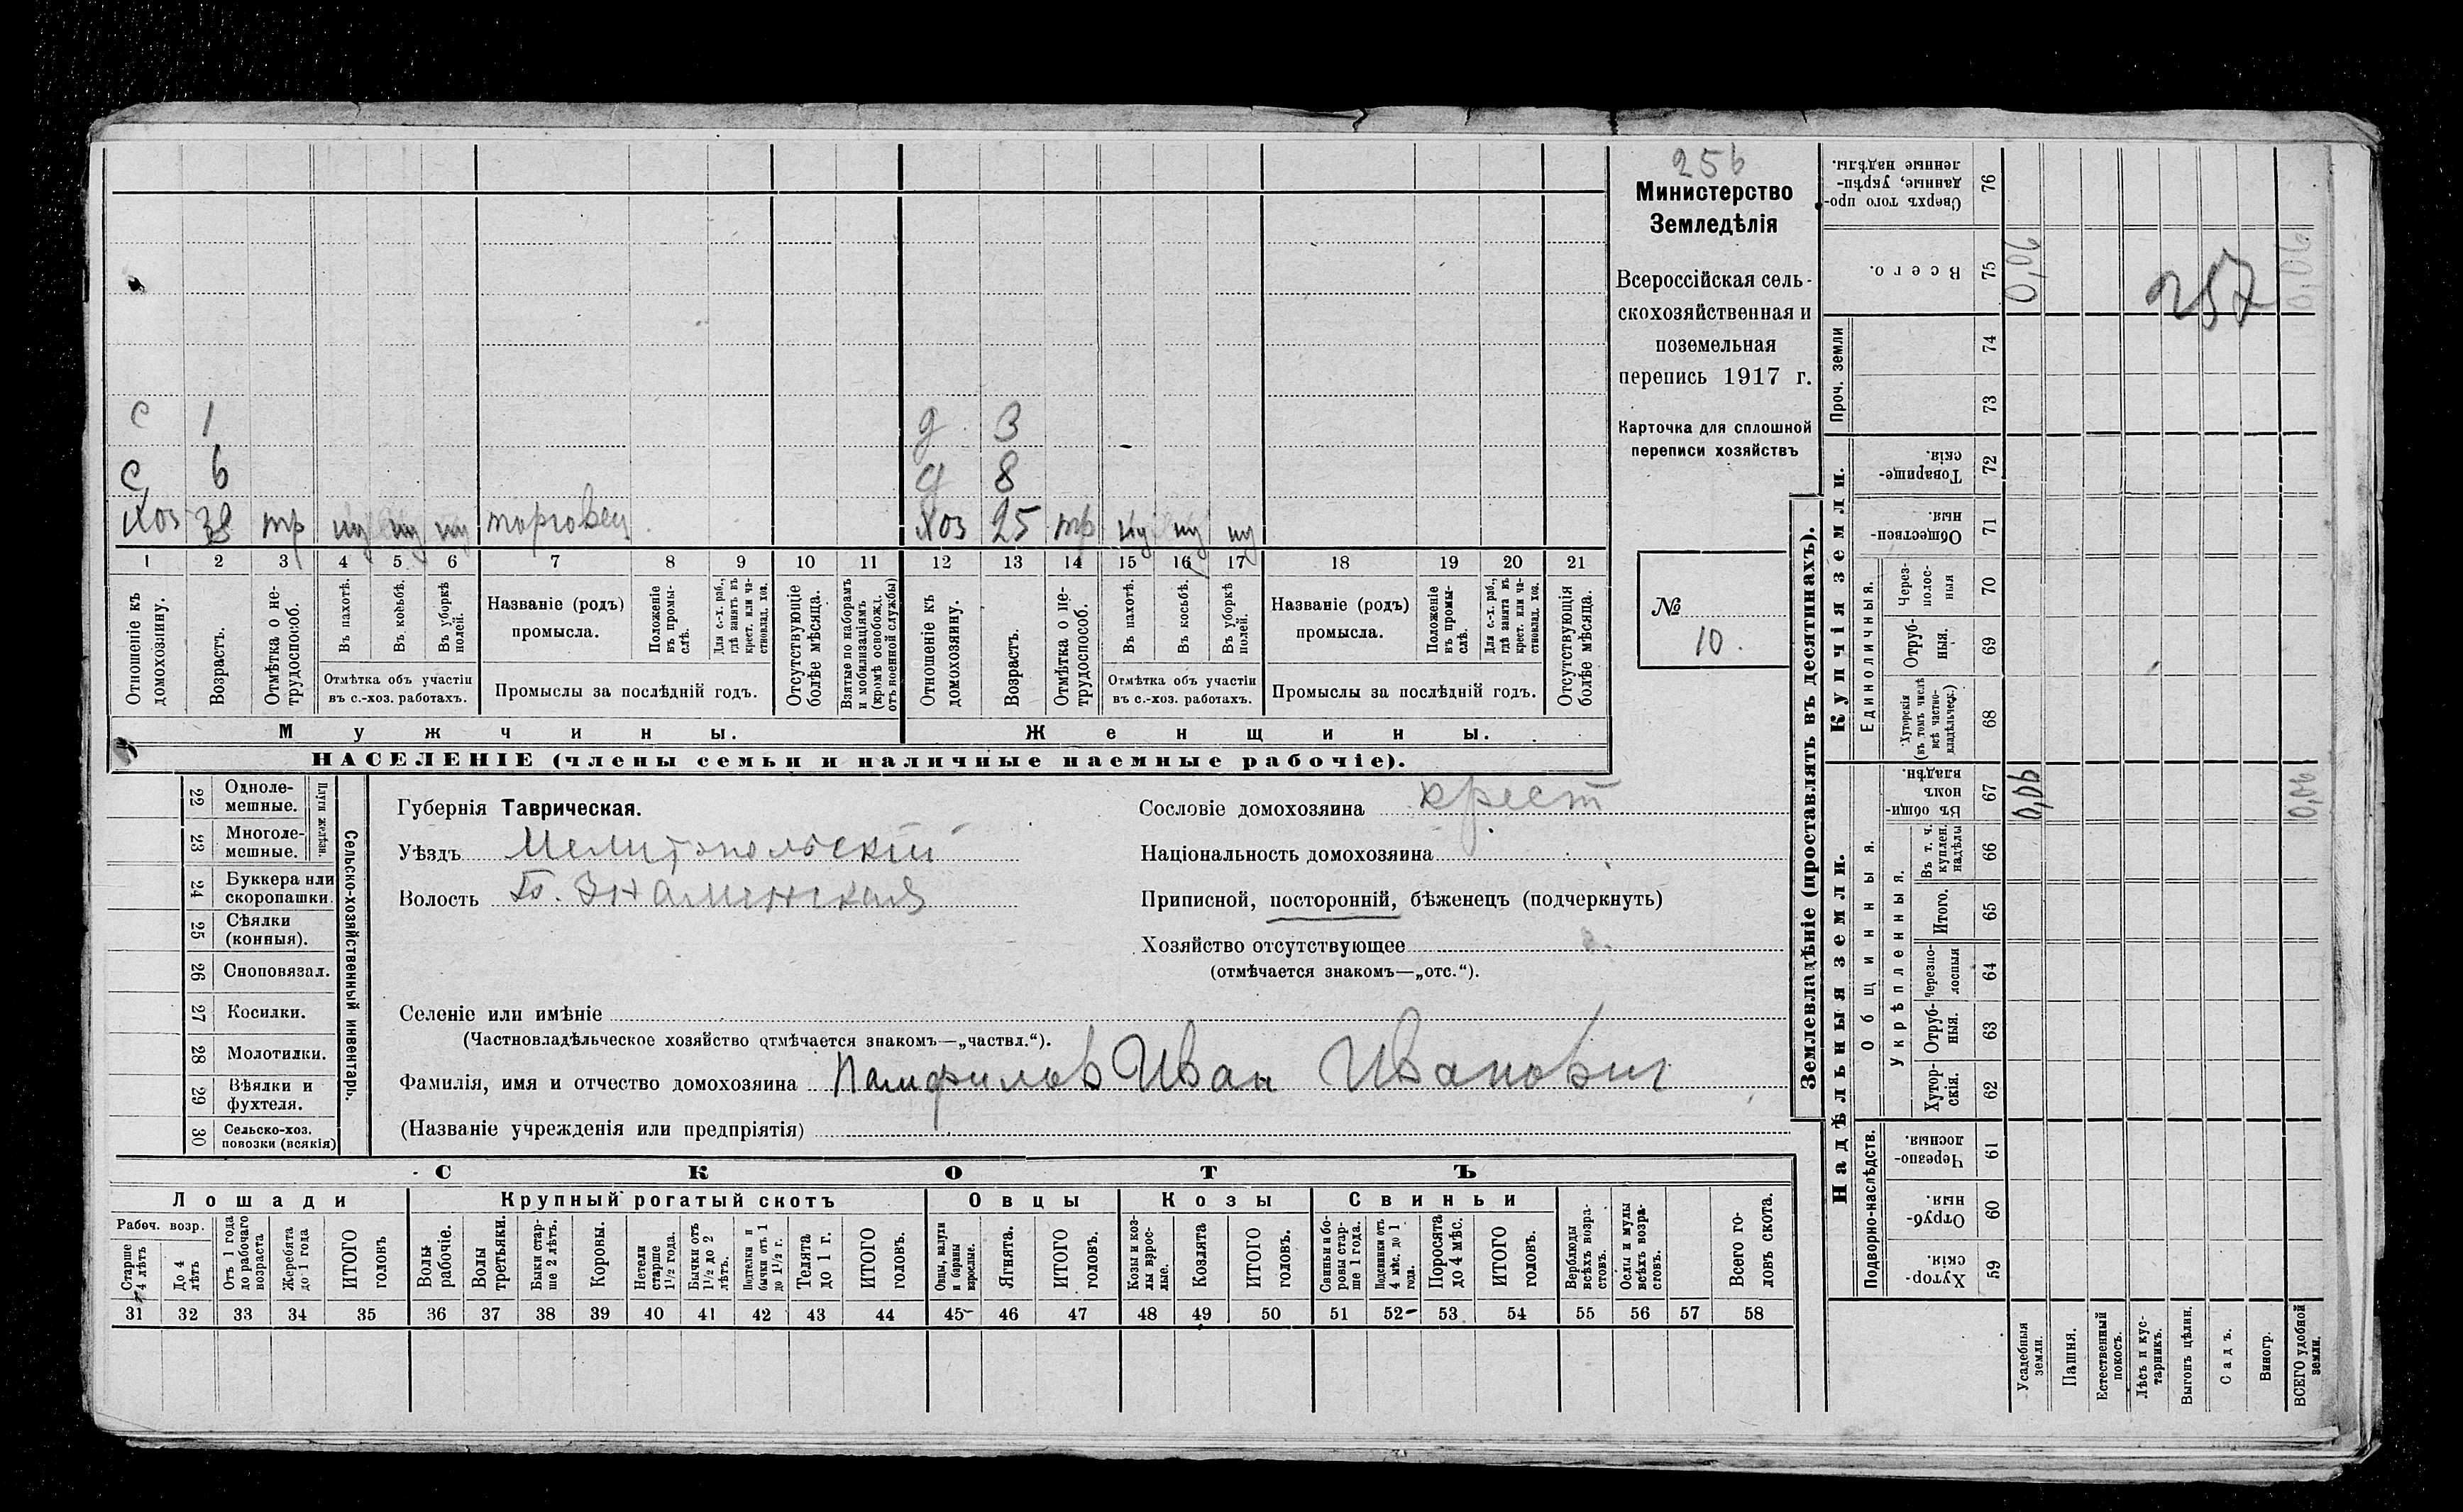 256
Министерство
Земледѣлія
Всероссійская сель-
скохозяйственная и
поземельная
перепись 1917 г.
Карточка для сплошной
переписи хозяйствъ
№
10.
с 1 д 3
с 6 д 8
Хоз 38 тр торговец Хоз 25 тр
1 2 3 4 5 6 7 8 9 10 11 12 13 14 15 16 17 18 19 20 21
Отношеніе къ домохозяину.
Возрастъ.
Отмѣтка о не-трудоспособ.
Въ пахотѣ.
Въ косьбѣ.
Въ уборкѣ полей.
Отмѣтка объ участіи
въ с.-хоз. работахъ.
Названіе (родъ)
промысла.
Положеніе въ промы-слѣ.
Для с.-х. раб., гдѣ занятъ въ крест. или ча-стновлад. хоз.
Промыслы за послѣдній годъ.
Отсутствующіе болѣе мѣсяца.
Взятые по наборамъ и мобилизаціямъ (кромѣ освобожд. отъ военной службы)
Отношеніе къ домохозяину.
Возрастъ.
Отмѣтка о не-трудоспособ.
Въ пахотѣ.
Въ косьбѣ.
Въ уборкѣ полей.
Отмѣтка объ участіи
въ с.-хоз. работахъ.
Названіе (родъ)
промысла.
Положеніе въ промы-слѣ.
Для с.-х. раб., гдѣ занята въ крест. или ча-стновлад. хоз.
Промыслы за послѣдній годъ.
Отсутствующія болѣе мѣсяца.
Мужчины. Женщины.
НАСЕЛЕНІЕ (члены семьи и наличные наемные рабочіе).
22 Одноле-мешные.
23 Многоле-мешные.
Плуги желѣзн.
24 Буккера или скоропашки.
25 Сѣялки (конныя).
26 Сноповязал.
27 Косилки.
28 Молотилки.
29 Вѣялки и фухтеля.
30 Сельско-хоз. повозки (всякія)
Сельско-хозяйственный инвентарь.
Губернія Таврическая.
Уѣздъ Мелитопольскій
Волость Б. Знаменская
Сословіе домохозяина крест
Національность домохозяина
Приписной, посторонній, бѣженецъ (подчеркнуть)
Хозяйство отсутствующее
(отмѣчается знакомъ—„отс.“).
Селеніе или имѣніе
(Частновладѣльческое хозяйство отмѣчается знакомъ—„частвл.“).
Фамилія, имя и отчество домохозяина Памфилов Иван Иванович
(Названіе учрежденія или предпріятія)
СКОТЪ
Лошади Крупный рогатый скотъ Овцы Козы Свиньи
Рабоч. возр.
Старше 4 лѣтъ
До 4 лѣтъ
Отъ 1 года до рабочаго возраста
Жеребята до 1 года
ИТОГО головъ
Волы рабочіе.
Волы третьяки.
Быки стар-ше 2 лѣтъ.
Коровы.
Нетели старше 1½ года.
Бычки отъ 1½ до 2 лѣтъ.
Подтелки и бычки отъ 1 до 1½ г.
Телята до 1 г.
ИТОГО головъ.
Овцы, валухи и бараны взрослые.
Ягнята.
ИТОГО головъ.
Козы и коз-лы взрос-лые.
Козлята
ИТОГО головъ.
Свиньи и бо-ровы стар-ше 1 года.
Подсвинки отъ 4 мѣс. до 1 года.
Поросята до 4 мѣс.
ИТОГО головъ.
Верблюды всѣхъ возра-стовъ.
Ослы и мулы всѣхъ возра-стовъ.
Всего го-ловъ скота.
31 32 33 34 35 36 37 38 39 40 41 42 43 44 45 46 47 48 49 50 51 52 53 54 55 56 57 58
Землевладѣніе (проставлять въ десятинахъ).
Сверхъ того про-данные, укрѣп-ленные надѣлы. 76
Всего. 75 0,06 257 0,06
Проч. земли
74
73
Купчія земли.
Товарище-скія. 72
Обществен-ныя. 71
Единоличныя.
Через-полос-ныя 70
Отруб-ныя. 69
Хуторскія (въ томъ числѣ всѣ частно-владѣльческ.) 68
Надѣльныя земли.
Общинныя.
Въ общи-номъ владѣн. 67 0,06 0,06
Укрѣпленныя.
Въ т. ч. куплен. надѣлы 66
Итого. 65
Черезпо-лосныя 64
Отруб-ныя. 63
Хутор-скія. 62
Подворно-наслѣдств.
Черезпо-лосныя. 61
Отруб-ныя. 60
Хутор-скія 59
Усадебныя земли.
Пашня.
Естественный покосъ.
Лѣсъ и кус-тарникъ.
Выгонъ цѣлин.
Садъ.
Виногр.
ВСЕГО удобной земли.